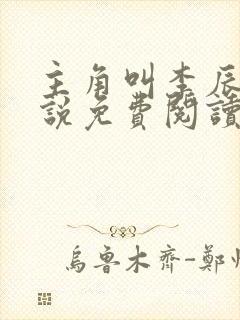 主角叫李辰
說免費閱讀
烏魯木齊-鄭州